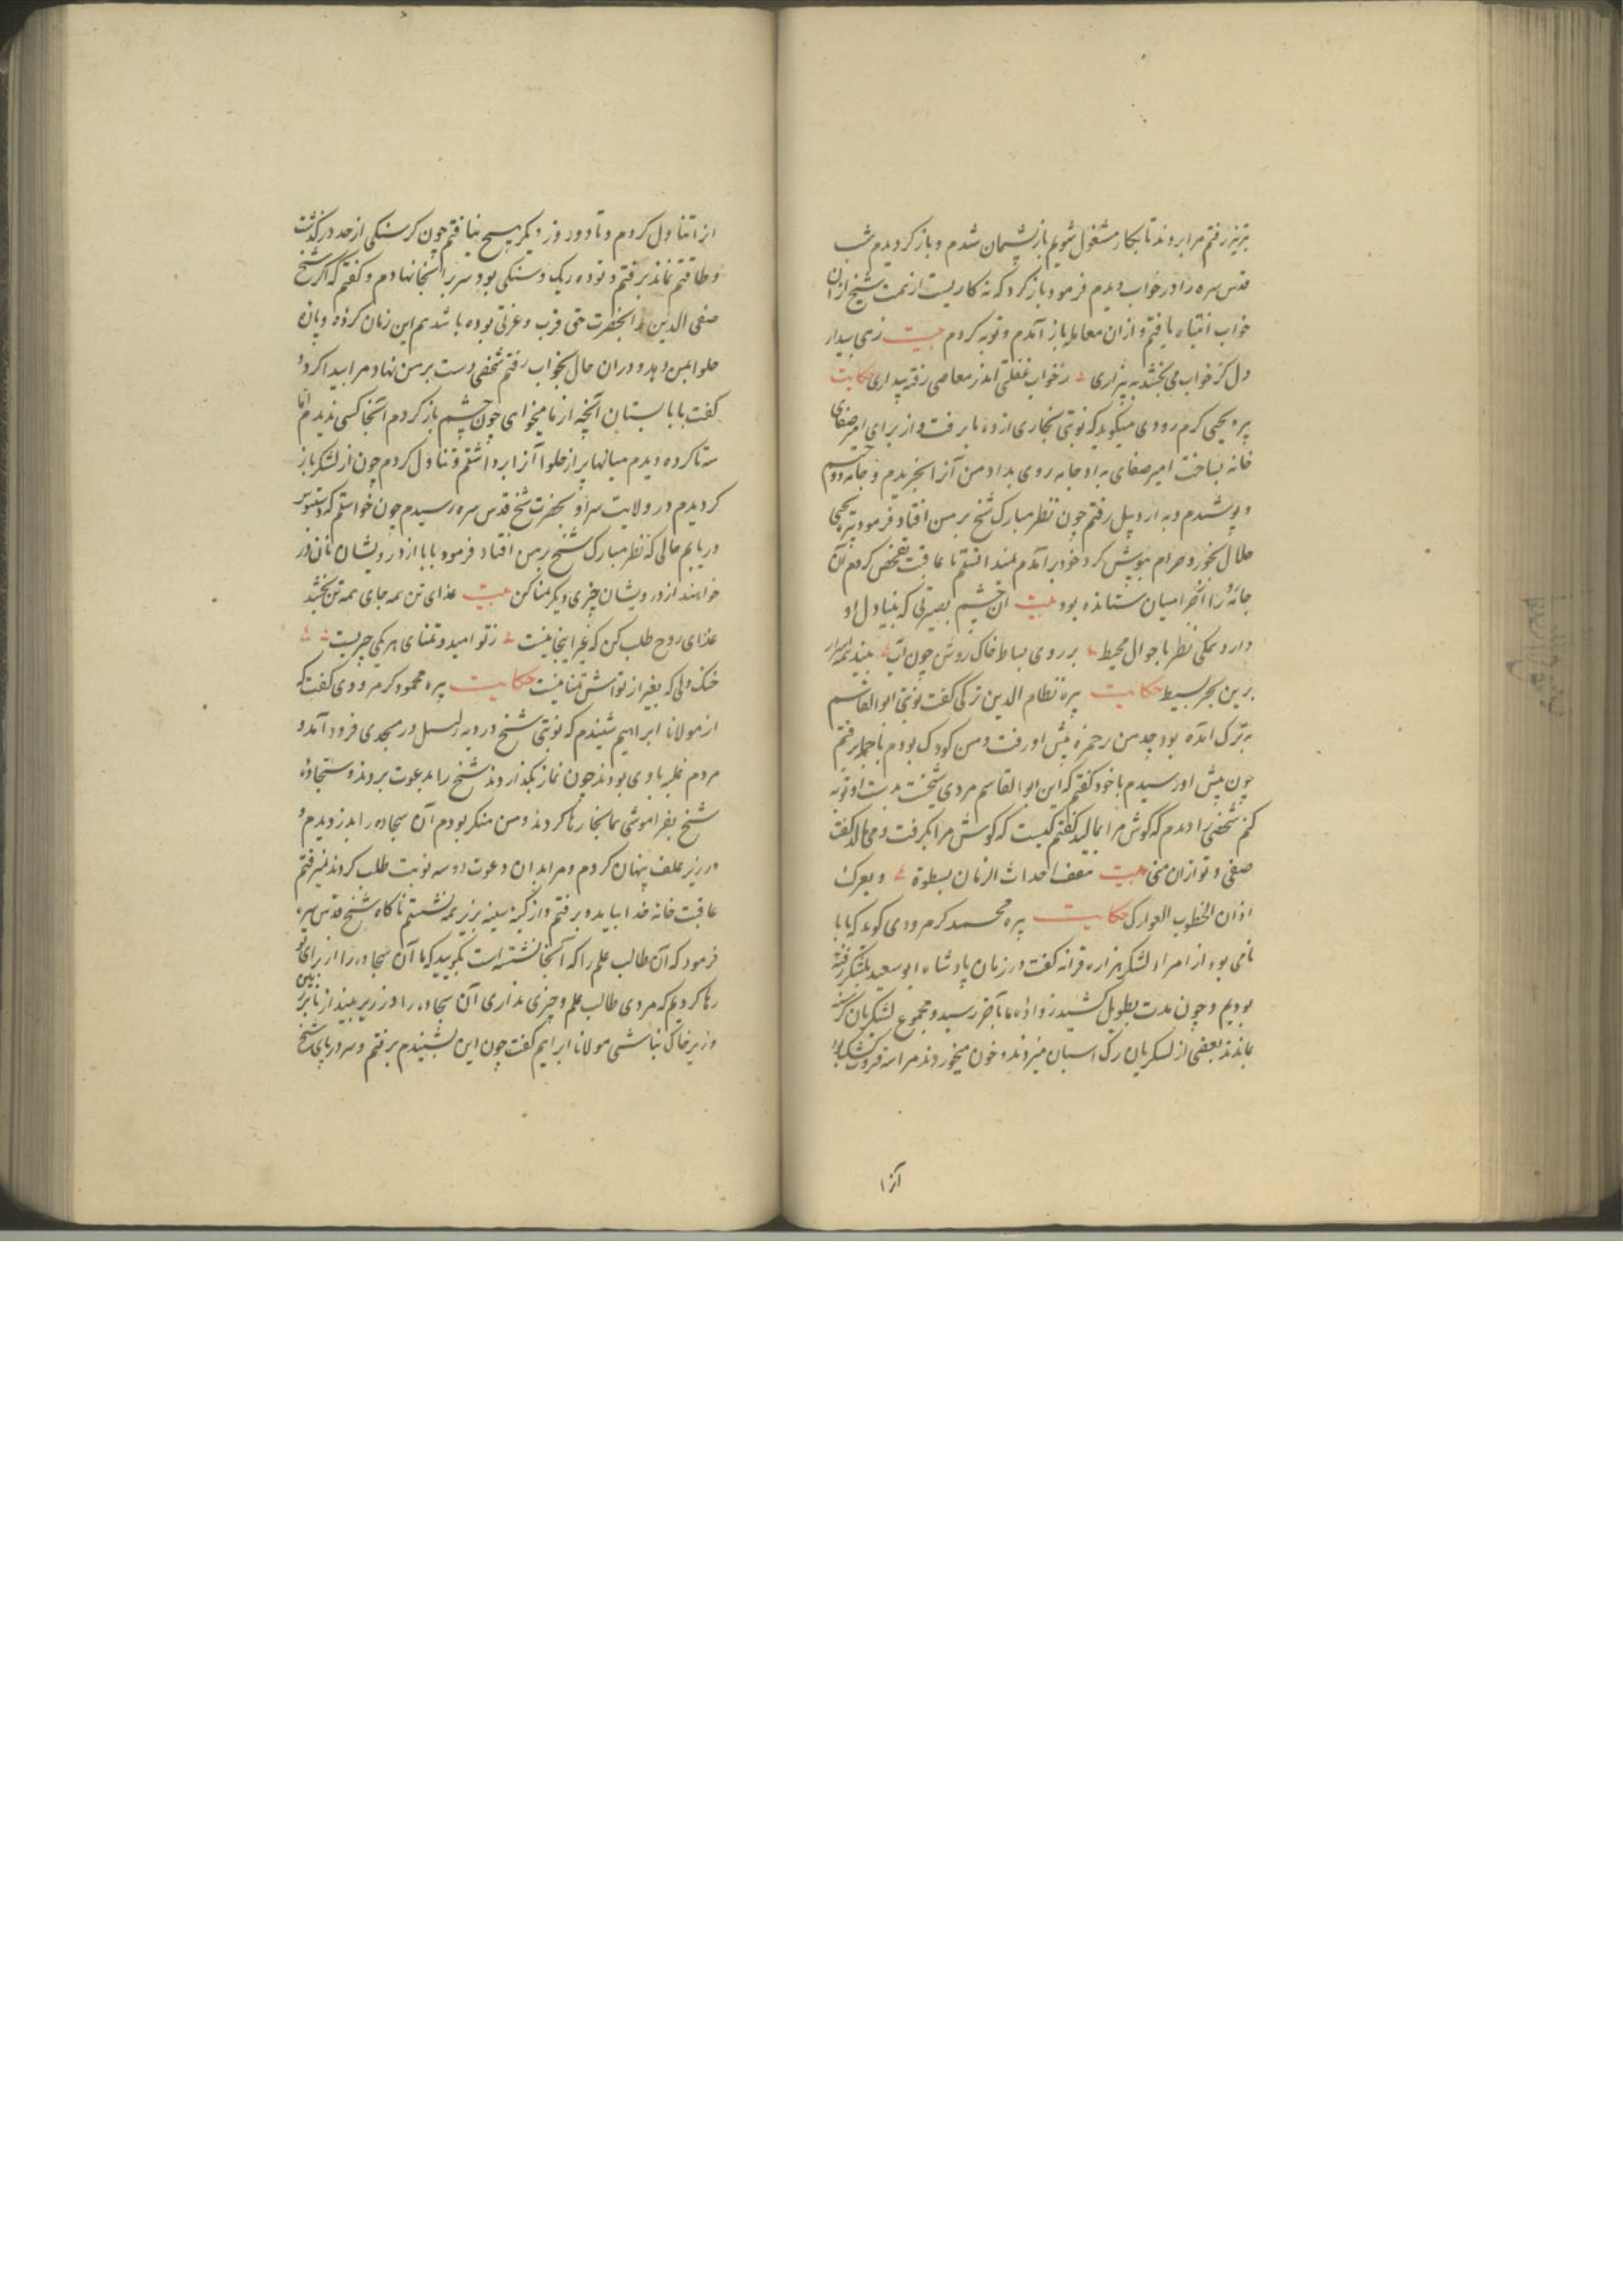 تبریز رفتم مرا بردند تا بکار مشغول شویم باز پشیمان شدم و باز کردیدم شب
قدس سره را در خواب دیدم فرمود باز کرد که نه کاریست از نمت شیخ از ان
خواب انتباه یافتم و ازان معامله باز آمدم و توبه کردم بیت زهی بیدار
دل کز خواب می بخشد به بیزاری ز خواب غفلتی اندر معاصی رفته بیداری حکایت
پیره یحیی کرم رودی میکوید که نوبتی نجاری از ده ما برفت و از برای امیر صفای
خانه بساخت امیر صفای به او جامه روی بداد من آنرا بخریدم و جامه دوختم
و پوشیدم و به اردبیل رفتم چون نظر مبارک شیخ بر من افتاد فرمود پیره یحیی
حلال بخور و حرام بپوش کرد خود برآمدم تا عاقبت تفحص کردم آن
جامه را از حرامیان ستانده بود بیت آن چشم بصیرتی که بنیاد دل او
دارد نظر با حوال محیط بر روی بساط خاک روشن چون آب بیند همه اسرار
برین بحر بسیط حکایت پیره نظام الدین ترکی گفت نوبتی ابو القاسم
به ترک آمده بود جد من رحمزه پیش او رفت و من کودک بودم با جد برفتم
چون پیش او رسیدم با خود گفتم که این ابو القاسم مردی شیخست بدست او توبه
کنم شخصی را دیدم که گوش مرا بمالید گفتم کیست که گوش مرا بگرفت و می مالد گفت
صفی و تو ازان منی بیت احداث الزمان بسطوة و یعرک
اذان الخطوب العوارک حکایت پیره محمد کرمرودی گوید که بابا
نامی بود از امراء لشکر هزاره قرانه گفت در زمان پادشاه ابو سعید بلشکر رفته
بودیم و چون مدت بطویل کشید زواده ما بآخر رسید و مجموع لشکریان گرسنه
بماندند بعضی از لشکریان رک اسبان میزدند و خون میخوردند مرا سه قروت خشک بود
آنرا
انرا تناول کردم و تا دو روز دیگر هیچ نیافتم چون گرسنگی از حد درگذشت
و طاقتم نماند برفتم و توده ریک و سنگی بود سر بر آنجا نهادم و گفتم که اگر شیخ
صفی الدین را بحضرت حق قرب و عزتی بوده باشد هم این زمان کرده و پاره
حلوا بمن دهد و در ان حال بخواب رفتم شخصی دست بر من نهاد و مرا بیدار کرد و
گفت بابا بستان آنچه از ما میخواهی چون چشم باز کردم آنجا کسی ندیدم اما
سه تا کرده دیدم میانها پر از حلوا آنرا برداشتم و تناول کردم چون از لشکر باز
کردیدم در ولایت سراو بحضرت شیخ قدس سره رسیدم چون خواستم که دستبوس
دریابم حالی که نظر مبارک شیخ بر من افتاد فرمود بابا از درویشان نان در
خواهند از درویشان چیزی دیگر تمنا کن بیت غذای تن همه جای همه تن بخشد
غذای روح طلب کن که بجز اینجا نیست ز تو امید و تمنای هر یکی چیزیست
خنک دلی که بغیر از تواش تمنا نیست حکایت پیره محمود کرمرودی گفت که
از مولانا ابراهیم شنیدم که نوبتی شیخ در دیه در مسجدی فرود آمد و
مردم غلبه با وی بودند چون نماز بگذاردند شیخ را بدعوت بردند و سجاده
شیخ بفراموشی همانجا رها کردند و من منکر بودم آن سجاده را بدزدیدم و
در زیر علف پنهان کردم و مرا بدان دعوت دو سه نوبت طلب کردند نمیرفتم
عاقبت خانه خدا بیامد و برفتم و از کینه سینه بزیر همه نشستم ناگاه شیخ قدس سره
فرمود که آن طالب علم را که آنجا نشسته است بگویید که ما آن سجاده را از برای تو
رها کردیم که مردی طالب علم و چیزی نداری آن سجاده را در زیر بینداز تا بر زمین
و زیر خاک نباشی مولانا ابراهیم گفت چون این بشنیدم برفتم و سر در پای شیخ